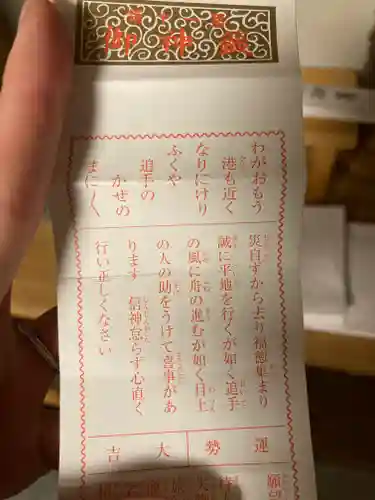 御神籤
わがおもう
港も近く
なりにけり
ふくや
追手の
かぜの
まにく
災自ずから去り福徳集まり
誠に平地を行くが如く追手
の風に舟の進むが如く目上
の人の助をうけて喜事があ
ります 信神怠らず心直く
行い正しくなさい
運勢
大吉
願望